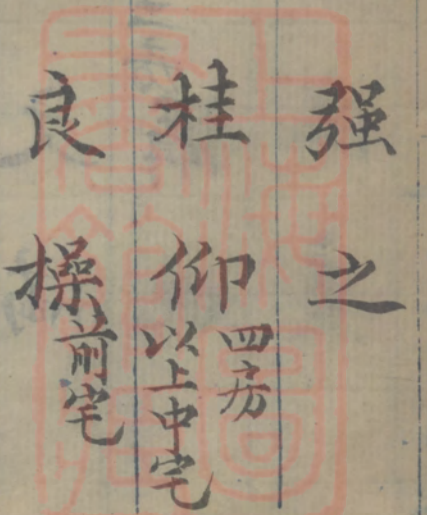 强之
桂仰 四房
以上中宅
良操 前宅